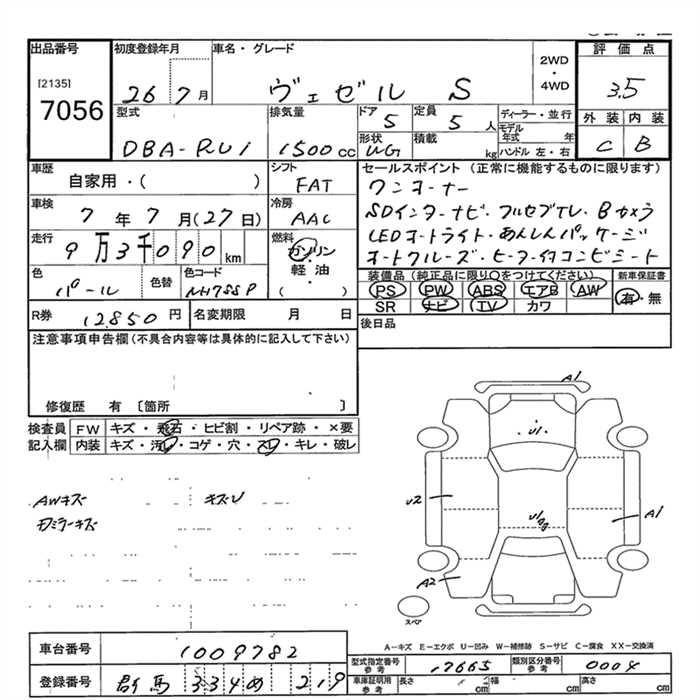 出品番号 初度登録年月 車名・グレード 2WD・4WD 評価点
[2135] 7056
26 7月 ヴェゼル S 3.5
型式 排気量 ドア 定員 ディーラー・並行 外装 内装
DBA-RU1 1500cc 5 5人 モデル年式 年 C B
形状 WG 積載 kg ハンドル 左・右
車歴 シフト セールスポイント(正常に機能するものに限ります)
自家用・( ) FAT ワンオーナー
車検 冷房 SDインターナビ・フルセグTV・Bカメラ
7年7月(27日) AAC LEDオートライト・あんしんパッケージ
走行 燃料 オートクルーズ・ヒーター付コンビシート
9万3千090km ガソリン・軽油( )
色 色替 色コード 装備品(純正品に限り○をつけてください) 新車保証書
パール NH788P PS PW ABS エアB AW 有・無
SR ナビ TV カワ
R券 12,850円 名変期限 月 日 後日品
注意事項申告欄(不具合内容等は具体的に記入して下さい)
修復歴 有 〔箇所 〕
検査員記入欄 FW キズ・飛石・ヒビ割・リペア跡・×要
内装 キズ・汚レ・コゲ・穴・スレ・キレ・破レ
AWキズ キズU
ミラーキズ
A1
U1
U2
A1
A2
スペア
A-キズ E-エクボ U-凹み W-補修跡 S-サビ C-腐食 XX-交換済
車台番号 1009782 型式指定番号参考 17665 類別区分番号参考 0004
登録番号 群馬 334め 219 車庫証明用参考 長さ cm 幅 cm 高さ cm